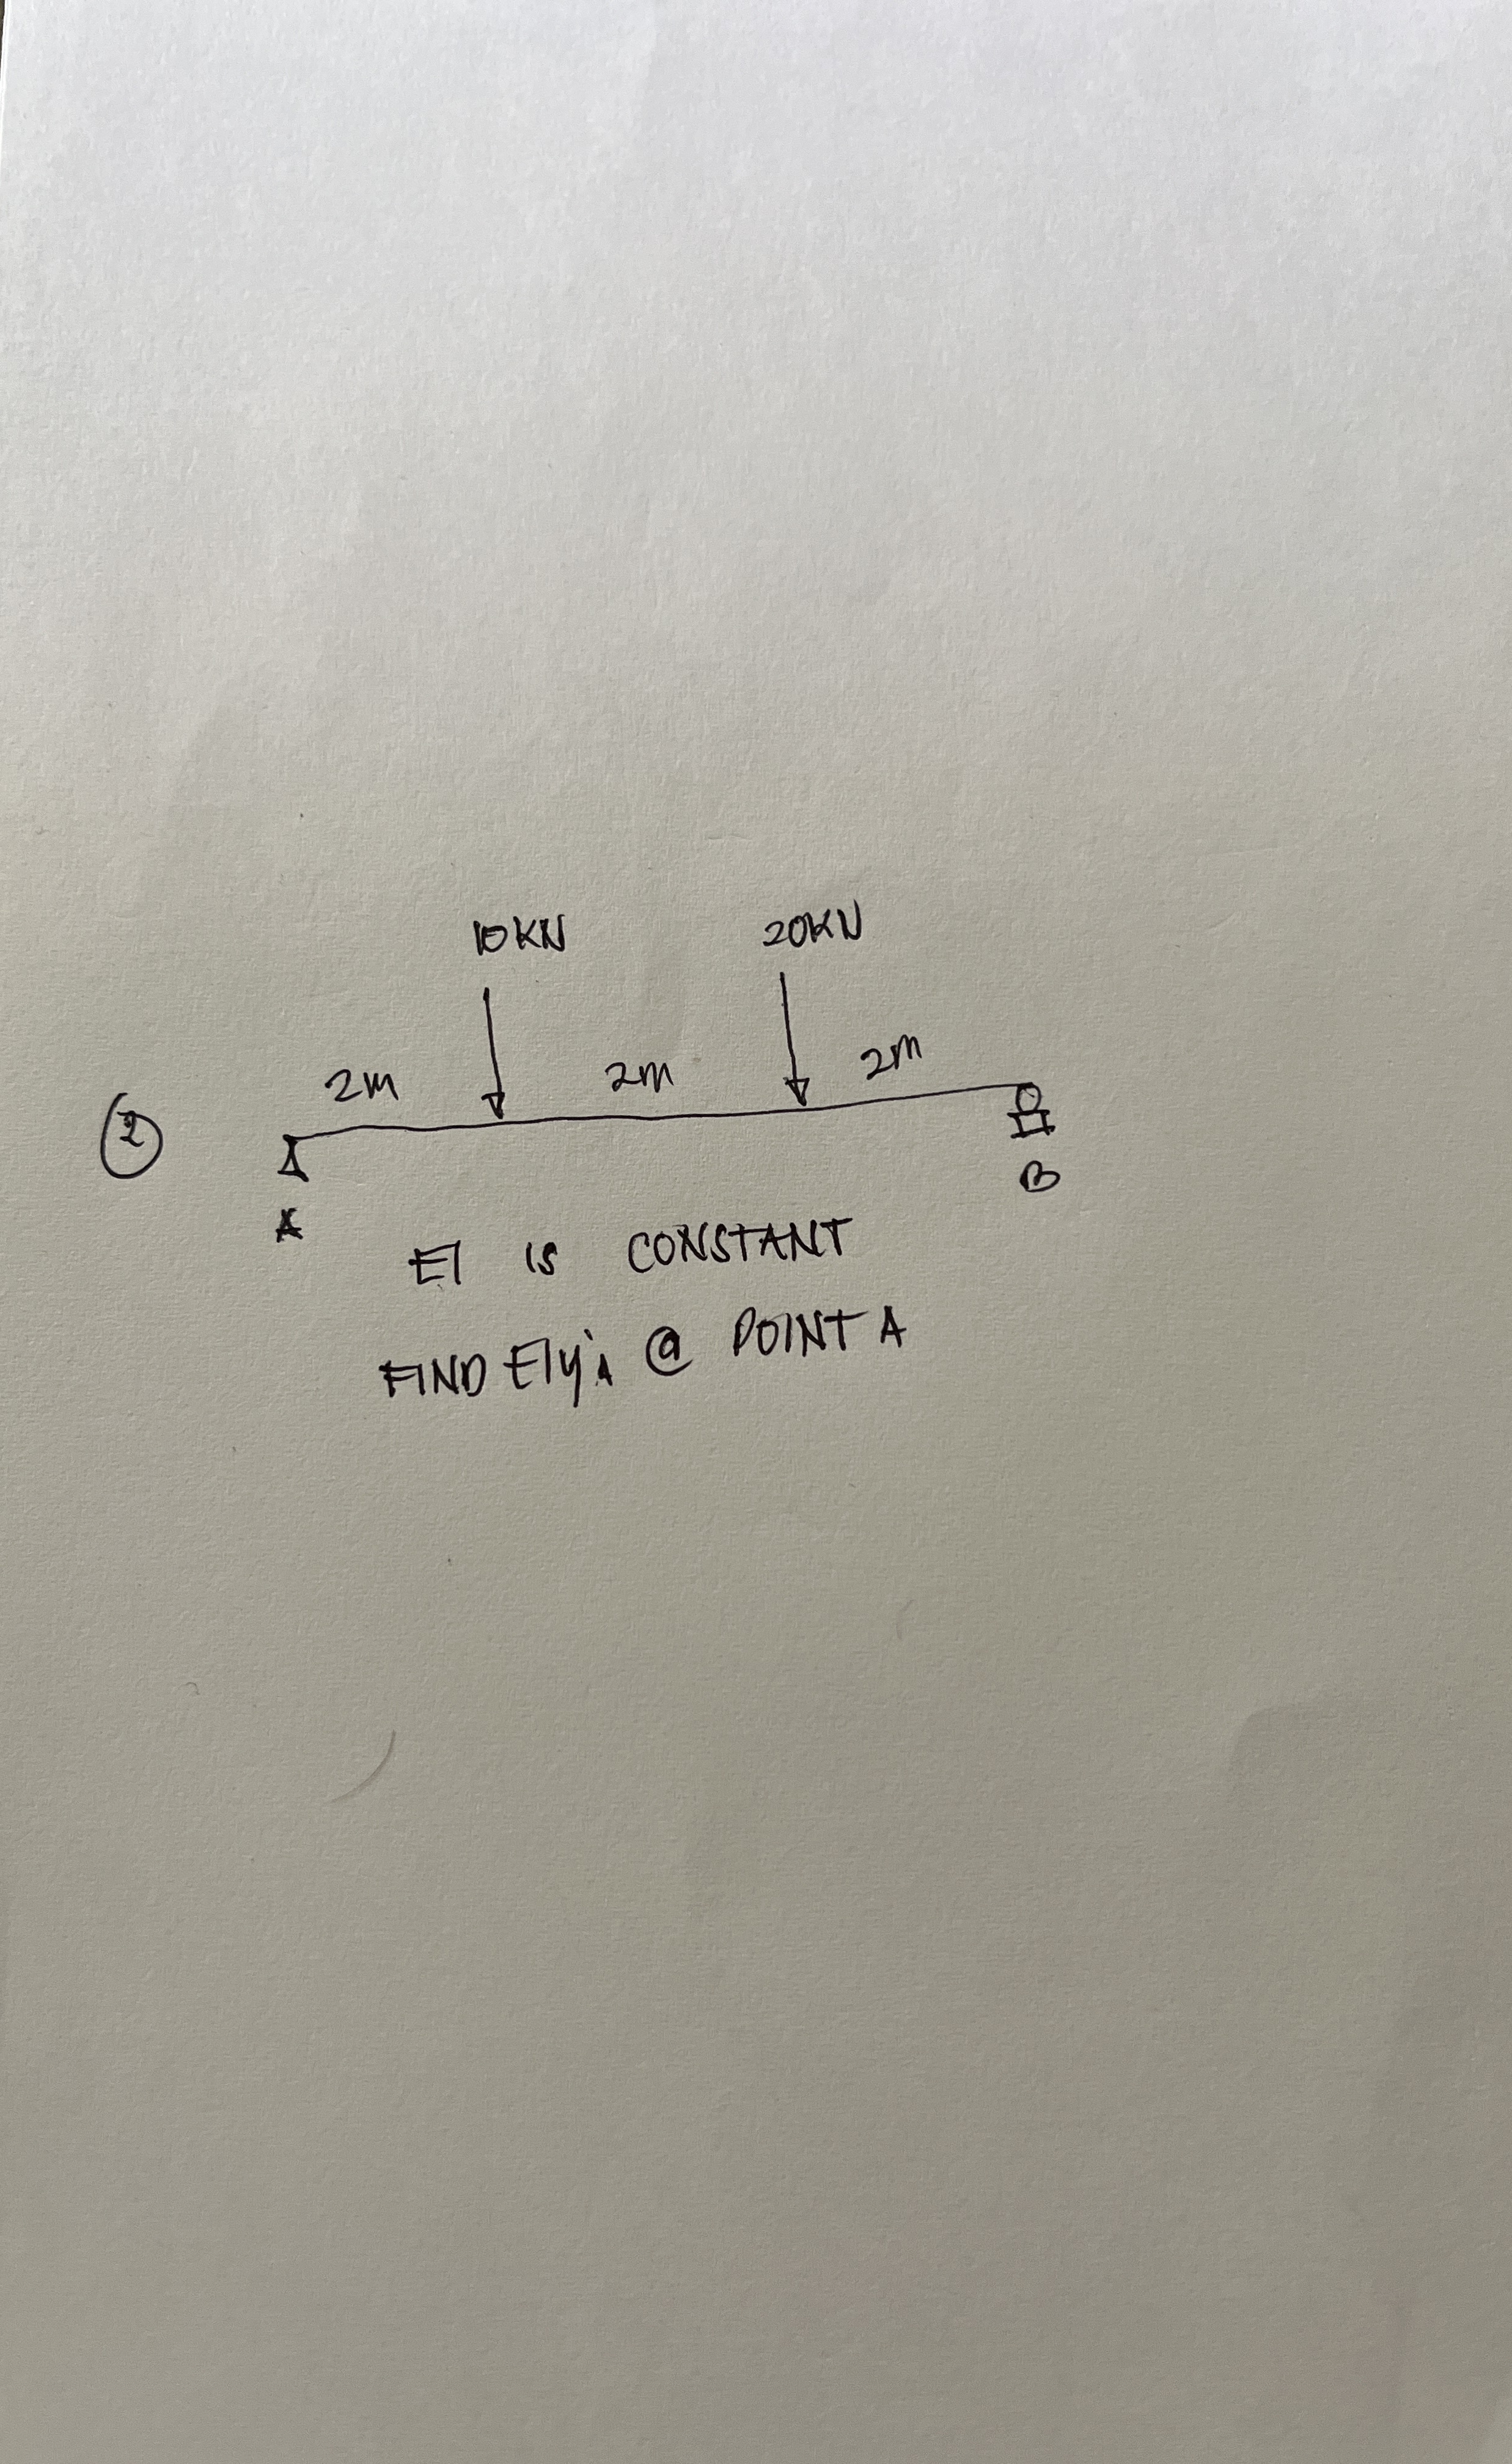 10KN 20KN
2m 2m 2m
2
A B
EI IS CONSTANT
FIND EIy'A @ POINT A